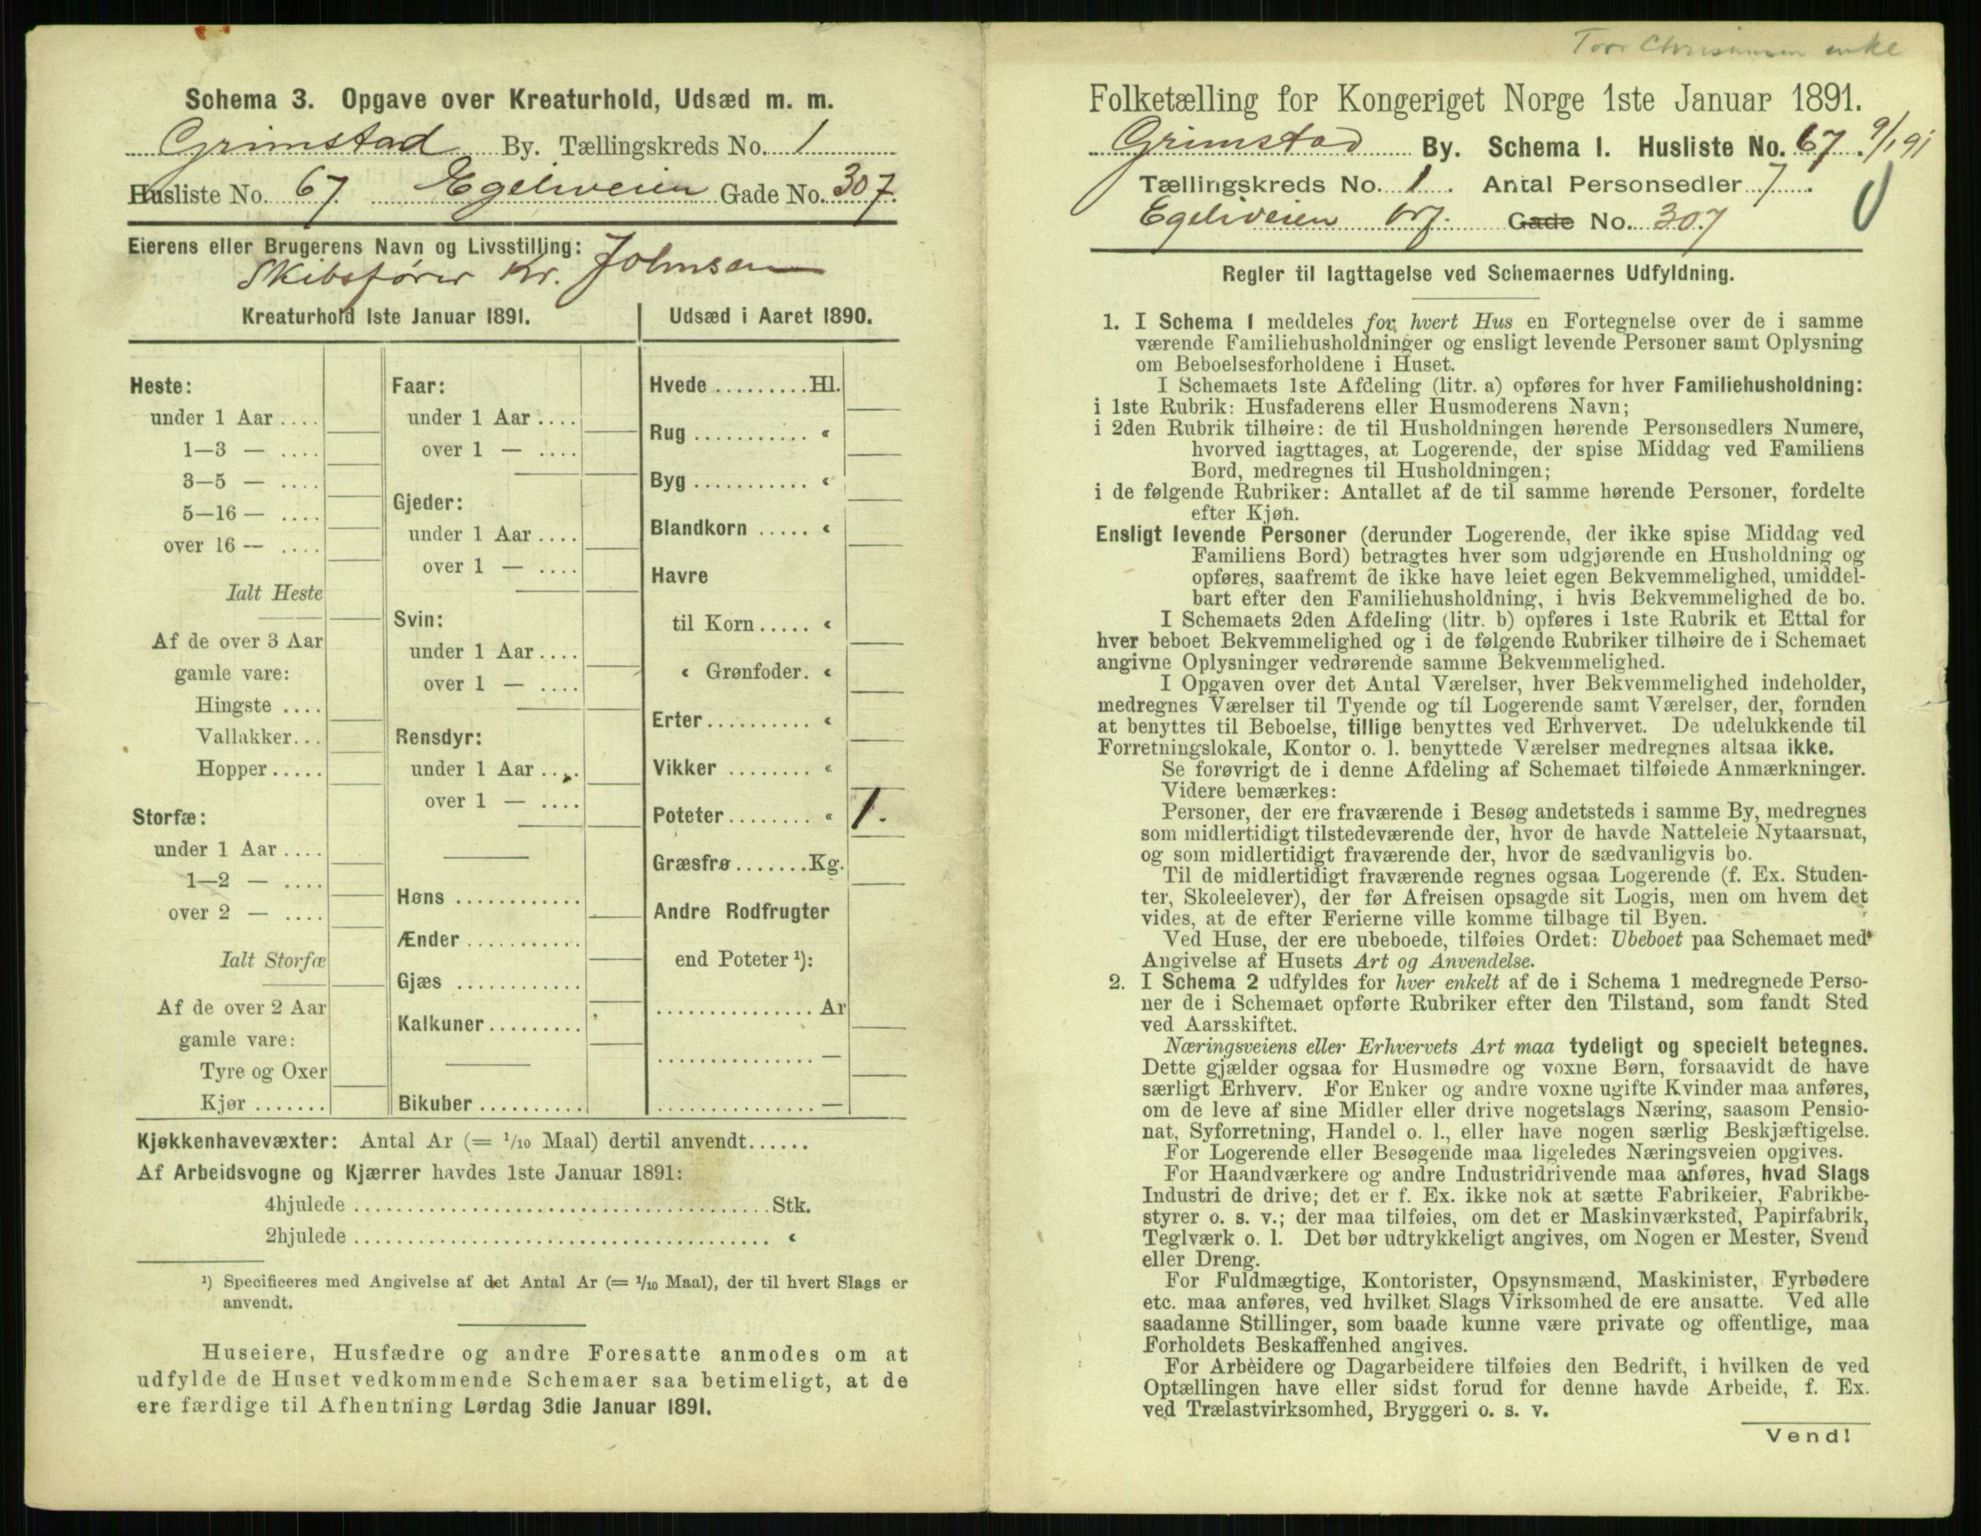 Schema 3. Opgave over Kreaturhold, Udsæd m. m.
Grimstad By. Tællingskreds No. 1
Husliste No. 67 Egeliveien Gade No. 307.
Eierens eller Brugerens Navn og Livsstilling:
Skibsfører Kr. Johnsen
Kreaturhold 1ste Januar 1891.
Heste:
under 1 Aar ....
1—3 — ....
3—5 — ....
5—16 — ....
over 16 — ....
Ialt Heste
Af de over 3 Aar
gamle vare:
Hingste ....
Vallakker...
Hopper.....
Storfæ:
under 1 Aar ....
1—2 — ....
over 2 — ....
Ialt Storfæ
Af de over 2 Aar
gamle vare:
Tyre og Oxer
Kjør .......
Faar:
under 1 Aar ....
over 1 — ....
Gjeder:
under 1 Aar ....
over 1 — ....
Svin:
under 1 Aar ....
over 1 — ....
Rensdyr:
under 1 Aar ....
over 1 — ....
Høns ............
Ænder ...........
Gjæs ............
Kalkuner.........
Bikuber ..........
Udsæd i Aaret 1890.
Hvede .........Hl.
Rug ........... «
Byg ........... «
Blandkorn ..... «
Havre
til Korn ..... «
« Grønfoder. «
Erter.......... «
Vikker ........ «
Poteter........ « 1.
Græsfrø .......Kg.
Andre Rodfrugter
end Poteter ¹):
............... Ar
............... —
............... —
Kjøkkenhavevæxter: Antal Ar (= 1/10 Maal) dertil anvendt......
Af Arbeidsvogne og Kjærrer havdes 1ste Januar 1891:
4hjulede ....................................... Stk.
2hjulede ....................................... «
¹) Specificeres med Angivelse af det Antal Ar (= 1/10 Maal), der til hvert Slags er
anvendt.
Huseiere, Husfædre og andre Foresatte anmodes om at
udfylde de Huset vedkommende Schemaer saa betimeligt, at de
ere færdige til Afhentning Lørdag 3die Januar 1891.
enke
Folketælling for Kongeriget Norge 1ste Januar 1891.
Grimstad By. Schema I. Husliste No. 67. 9/1 91
Tællingskreds No. 1. Antal Personsedler 7.
Egeliveien Gade No. 307
Regler til Iagttagelse ved Schemaernes Udfyldning.
1. I Schema 1 meddeles for hvert Hus en Fortegnelse over de i samme
værende Familiehusholdninger og ensligt levende Personer samt Oplysning
om Beboelsesforholdene i Huset.
I Schemaets 1ste Afdeling (litr. a) opføres for hver Familiehusholdning:
i 1ste Rubrik: Husfaderens eller Husmoderens Navn;
i 2den Rubrik tilhøire: de til Husholdningen hørende Personsedlers Numere,
hvorved iagttages, at Logerende, der spise Middag ved Familiens
Bord, medregnes til Husholdningen;
i de følgende Rubriker: Antallet af de til samme hørende Personer, fordelte
efter Kjøn.
Ensligt levende Personer (derunder Logerende, der ikke spise Middag ved
Familiens Bord) betragtes hver som udgjørende en Husholdning og
opføres, saafremt de ikke have leiet egen Bekvemmelighed, umiddel-
bart efter den Familiehusholdning, i hvis Bekvemmelighed de bo.
I Schemaets 2den Afdeling (litr. b) opføres i 1ste Rubrik et Ettal for
hver beboet Bekvemmelighed og i de følgende Rubriker tilhøire de i Schemaet
angivne Oplysninger vedrørende samme Bekvemmelighed.
I Opgaven over det Antal Værelser, hver Bekvemmelighed indeholder,
medregnes Værelser til Tyende og til Logerende samt Værelser, der, foruden
at benyttes til Beboelse, tillige benyttes ved Erhvervet. De udelukkende til
Forretningslokale, Kontor o. l. benyttede Værelser medregnes altsaa ikke.
Se forøvrigt de i denne Afdeling af Schemaet tilføiede Anmærkninger.
Videre bemærkes:
Personer, der ere fraværende i Besøg andetsteds i samme By, medregnes
som midlertidigt tilstedeværende der, hvor de havde Natteleie Nytaarsnat,
og som midlertidigt fraværende der, hvor de sædvanligvis bo.
Til de midlertidigt fraværende regnes ogsaa Logerende (f. Ex. Studen-
ter, Skoleelever), der før Afreisen opsagde sit Logis, men om hvem det
vides, at de efter Ferierne ville komme tilbage til Byen.
Ved Huse, der ere ubeboede, tilføies Ordet: Ubeboet paa Schemaet med
Angivelse af Husets Art og Anvendelse.
2. I Schema 2 udfyldes for hver enkelt af de i Schema 1 medregnede Perso-
ner de i Schemaet opførte Rubriker efter den Tilstand, som fandt Sted
ved Aarsskiftet.
Næringsveiens eller Erhvervets Art maa tydeligt og specielt betegnes.
Dette gjælder ogsaa for Husmødre og voxne Børn, forsaavidt de have
særligt Erhverv. For Enker og andre voxne ugifte Kvinder maa anføres,
om de leve af sine Midler eller drive nogetslags Næring, saasom Pensio-
nat, Syforretning, Handel o. l., eller have nogen særlig Beskjæftigelse.
For Logerende eller Besøgende maa ligeledes Næringsveien opgives.
For Haandværkere og andre Industridrivende maa anføres, hvad Slags
Industri de drive; det er f. Ex. ikke nok at sætte Fabrikeier, Fabrikbe-
styrer o. s. v.; der maa tilføies, om det er Maskinværksted, Papirfabrik,
Teglværk o. l. Det bør udtrykkeligt angives, om Nogen er Mester, Svend
eller Dreng.
For Fuldmægtige, Kontorister, Opsynsmænd, Maskinister, Fyrbødere
etc. maa anføres, ved hvilket Slags Virksomhed de ere ansatte. Ved alle
saadanne Stillinger, som baade kunne være private og offentlige, maa
Forholdets Beskaffenhed angives.
For Arbeidere og Dagarbeidere tilføies den Bedrift, i hvilken de ved
Optællingen have eller sidst forud for denne havde Arbeide, f. Ex.
ved Trælastvirksomhed, Bryggeri o. s. v.
Vend!